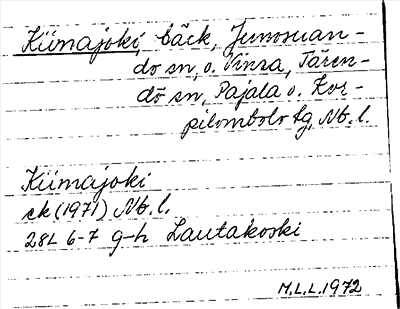 Kiimajoki, bäck, Junosuan-
do sn, o. Vinsa, Tären-
dö sn, Pajala o. Kor-
pilombolo tg, Nb. l.
Kiimajoki
ek (1971) Nb. l.
28L 6-7 g-h Lautakoski
M.L.L. 1972